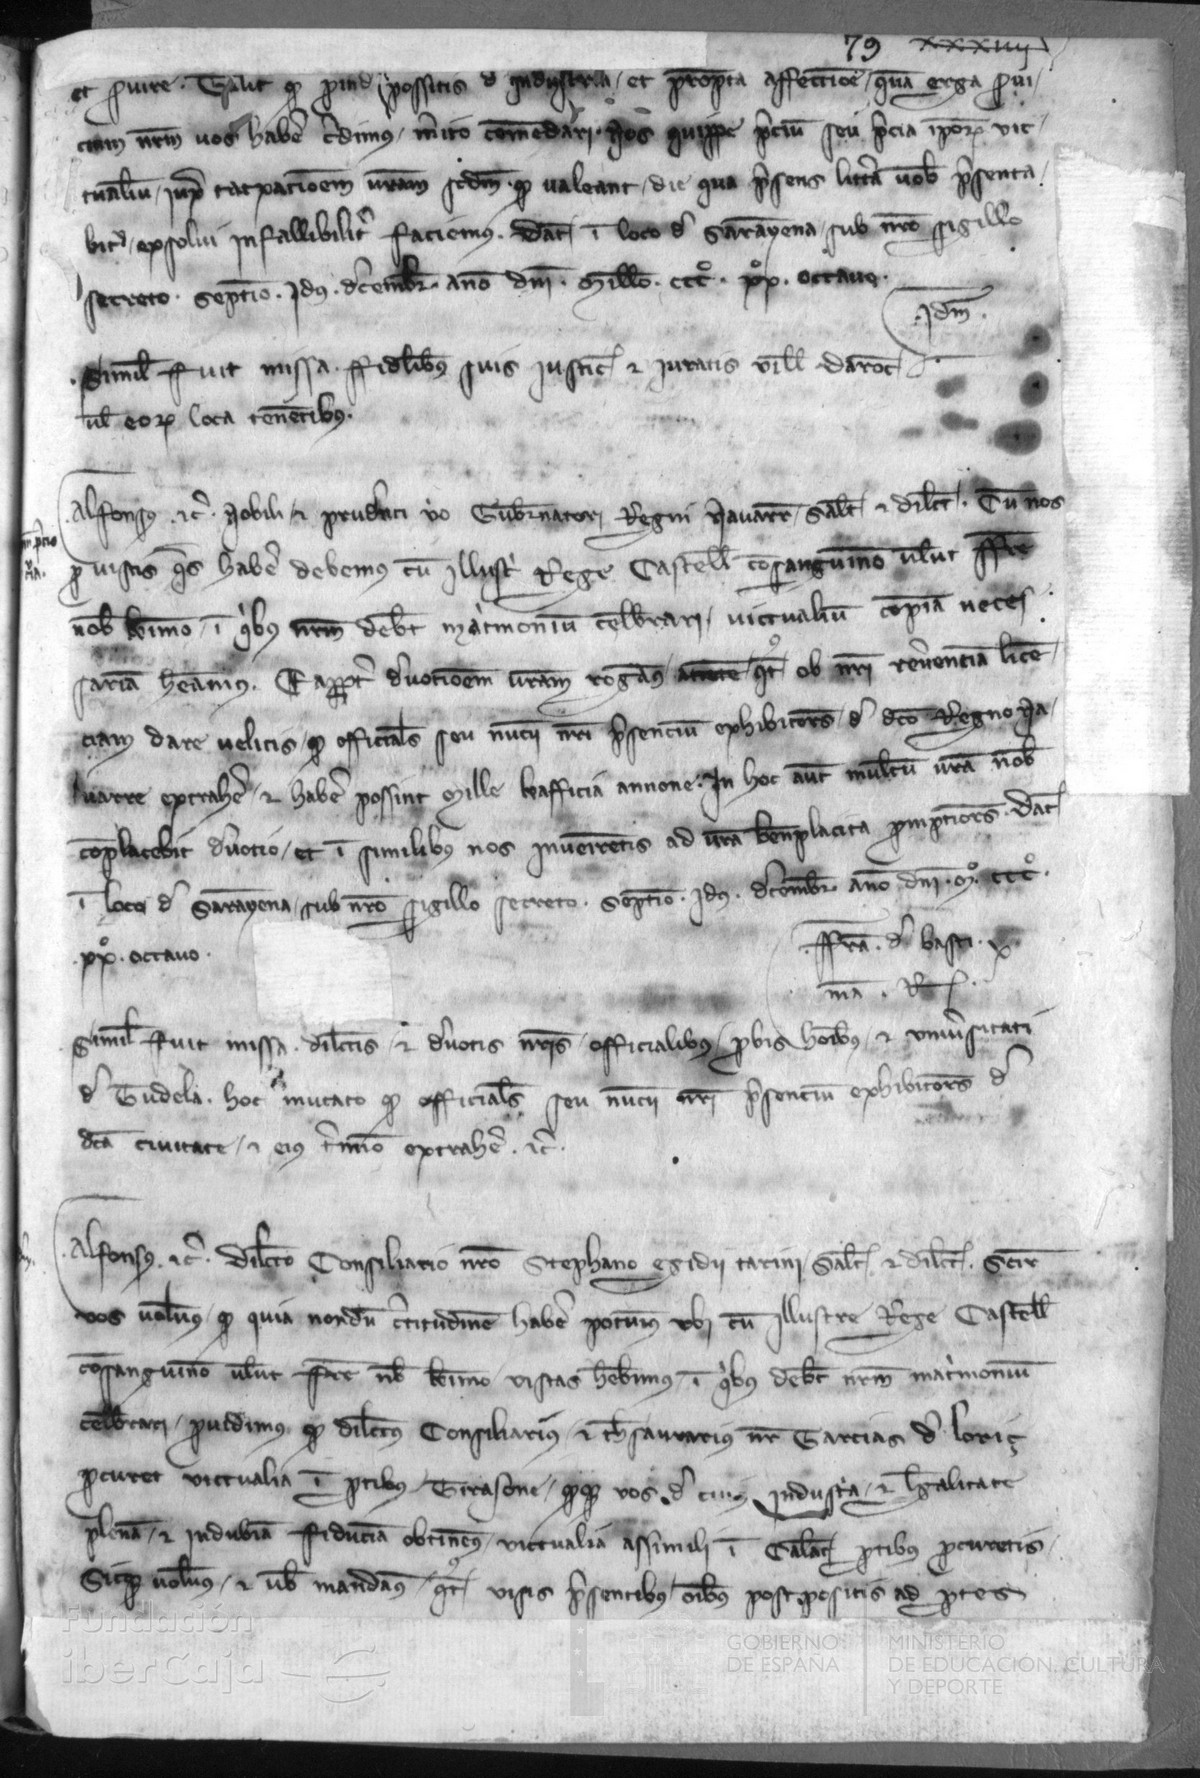 79 xxxiiij
et s̃uire. Taliṫ qđ proind possitis d industria et prompta affeccione quam erga ẜui
cium nr̃m uos haber̃ cr̃dimus, m̃ito comẽdari. Nos quippe p̃ciũ seu p̃cia ip̃oꝝ vic
tualiũ, iux̃ taxacionem vr̃am sc̃dm qđ valeant, die qua p̃sens litt̃a uob̃ p̃senta
bitr̃, exsolui infallibilit̃ faciemus. Dat̃ ĩ loco d̃ Saranyena, sub nr̃o sigillo
secreto. Septĩo. Idus. dec̃embr̃. anno dñi. Mill̃o. CCC°. xx°. octauo.
Idm̃.
Simil̃ fuit missa. ffidelibus suis iustic̃ et iuratis vill̃ Daroc̃
uel̃ eoꝝ loca tenẽtibus.
Alfonsus. etc̃. Nobili et prudẽti viro Gubernatori Regni Nauarr̃, Salt̃ et dilc̃t̃. Cũ nos
ꝓ vistis q̃s haber̃ debemus cũ illustr̃ Rege Castell̃ cõsanguineo ueluti ffr̃e
nob̃ kr̃imo, ĩ q̃bus nr̃m debet mat̃moniũ celebrari, victualiũ copiã neces
sariã heamus. Eapr̃opt̃ deuotionem vr̃am rogamus, attente q̃t̃ ob nr̃i reuerenciã licẽ
ciam dare velitis, qđ officiales seu nuncii nr̃i p̃senciũ exhibitores, d̃ dc̃o Regno Na
uarre extraher̃ et haber̃ possint Mille kafficia annone. In hoc aut̃ multũ vr̃a nob̃
cõplacebit deuotio, et ĩ similibus nos inueniretis ad vr̃a beneplacita promptiores. Dat̃
ĩ loco d̃ Saranyena, sub nr̃o sigillo secreto. Septĩo. Idus. dec̃embr̃ anno dñi. M°. CCC°.
xx°. octauo.
ffr̃a. d̃ basti. ex
mã. R̃.
Simil̃ fuit missa. dilectis et deuotis nr̃is, officialibus, ꝓbis hoĩbus, et vniuersitati
d̃ Tudela. hoc mutato qđ officiales seu nuncii nr̃i p̃senciũ exhibitores d̃
dc̃a ciuitate, et eius t̃mino extraher̃. etc̃.
Alfonsus. etc̃. Dilecto Consiliario nr̃o Stephano egidii tarini, Salt̃. et dilc̃t̃. Scir̃
vos uolumus, qđ quia nondũ c̃titudinẽ haber̃ potuimus ubi cũ illustre Rege Castell̃
cõsanguineo ueluti ffr̃e nob̃ kr̃imo, vistas hebimus, ĩ q̃bus debet nr̃m mat̃moniũ
celebrari, prouidimus qđ dilectus Consiliarius et thesaurarius nr̃ Garcias d̃ Loriz
procuret victualia ĩ partibus Tirasone, qđqđ vos d̃ cuius industria, et legalitate
plenã, et indubiã fiduciã obtinemus, victualia assimili ĩ Calat̃ partibus procuretis
Sicqđ uolumus, et uob̃ mandamus, q̃t̃ visis p̃sentibus, oĩbus postpositis ad partes
Fundación
iberCaja
GOBIERNO
DE ESPAÑA
MINISTERIO
DE EDUCACIÓN, CULTURA
Y DEPORTE